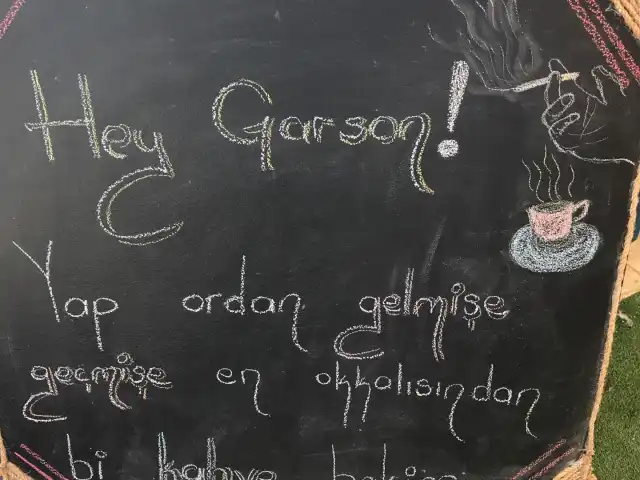 Hey Garson!
Yap ordan gelmişe
geçmişe en okkalısından
bi kahve